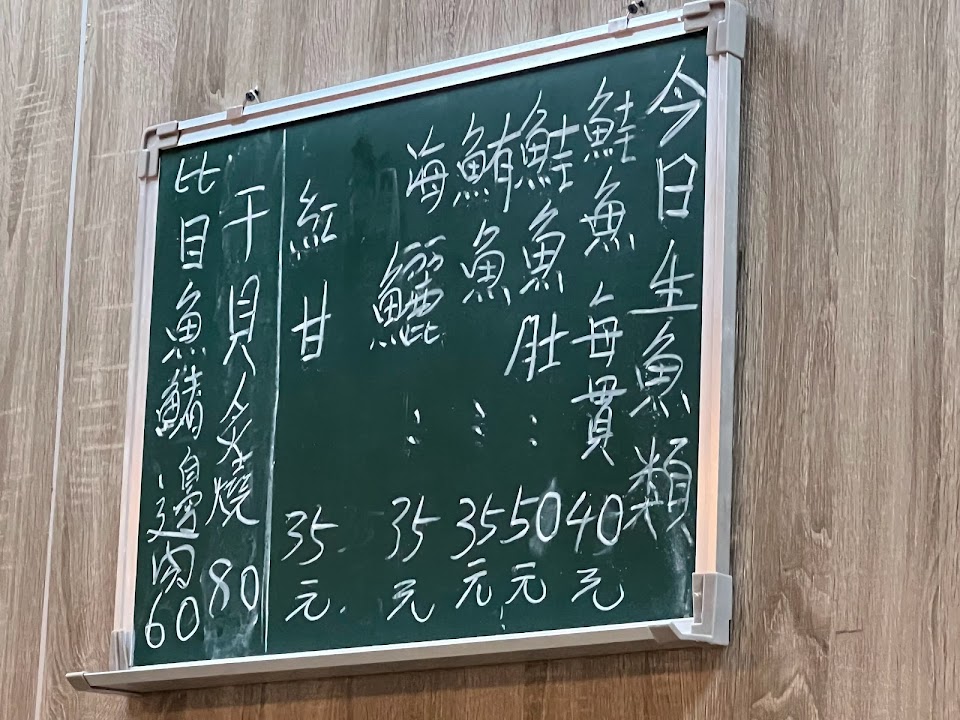 今日生魚類
鮭魚每貫40元
鮭魚肚：50元
鮪魚：35元
海鱺：35元
紅甘 35元
干貝炙燒 80
比目魚鰭邊肉60